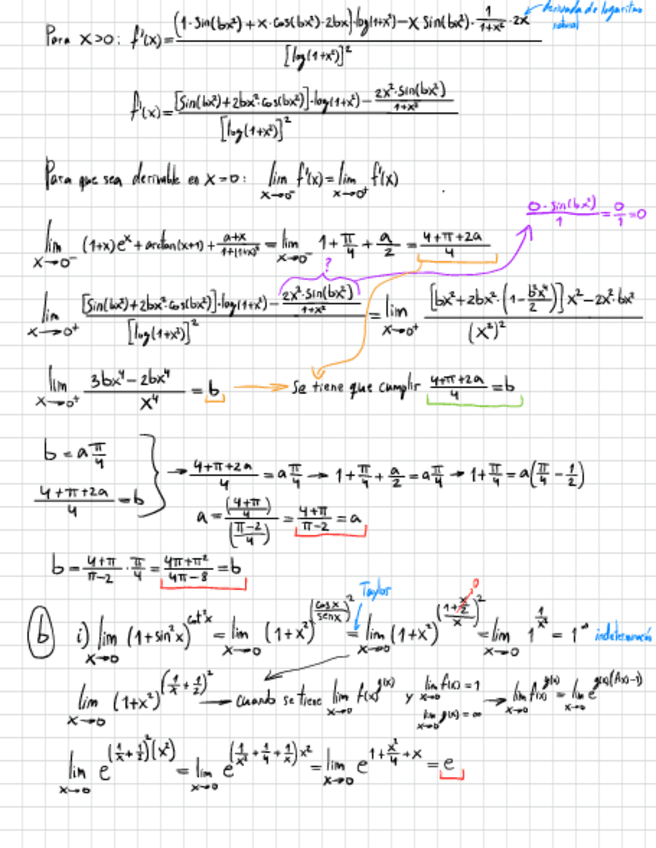 Para x>0: f'(x)= ((1·sin(bx²)+x·cos(bx²)·2bx)·log(1+x²)-x sin(bx²)·1/(1+x²)·2x) / [log(1+x²)]²
derivada de logaritmo
f'(x)= ([sin(bx²)+2bx²·cos(bx²)]·log(1+x²)-2x²·sin(bx²)/(1+x²)) / [log(1+x²)]²
Para que sea derivable en x=0: lim x→0⁻ f'(x)=lim x→0⁺ f'(x)
(0·sin(bx²))/1=0/1=0
lim x→0⁻ (1+x)eˣ+arctan(x+1)+(a+x)/(1+(1+x)²)=lim x→0⁻ 1+π/4+a/2=(4+π+2a)/4
?
lim x→0⁺ ([sin(bx²)+2bx²·cos(bx²)]·log(1+x²)-2x²·sin(bx²)/(1+x²)) / [log(1+x²)]² = lim x→0⁺ ([bx²+2bx²·(1-b²x⁴/2)]x²-2x²·bx²) / (x²)²
lim x→0⁺ (3bx⁴-2bx⁴)/x⁴=b → Se tiene que cumplir (4+π+2a)/4=b
b=a π/4
(4+π+2a)/4=b
→ (4+π+2a)/4=a π/4 → 1+π/4+a/2=a π/4 → 1+π/4=a(π/4-1/2)
a=((4+π)/4)/((π-2)/4)=(4+π)/(π-2)=a
b=(4+π)/(π-2)·π/4=(4π+π²)/(4π-8)=b
Taylor
0
b i) lim x→0 (1+sin²x)^(cot²x)=lim x→0 (1+x²)^((cosx/senx)²)=lim x→0 (1+x²)^(((1+x/2)/x)²)=lim x→0 1^(1/x²)=1^∞
lim x→0 (1+x²)^((1/x+1/2)²) → Cuando se tiene lim x→0 f(x)^(g(x)) y lim x→0 f(x)=1 lim x→0 g(x)=∞ → lim x→0 f(x)^(g(x))=lim x→0 e^(g(x)(f(x)-1))
lim x→0 e^((1/x+1/2)²(x²))=lim x→0 e^((1/x²+1/4+1/x)x²)=lim x→0 e^(1+x²/4+x)=e